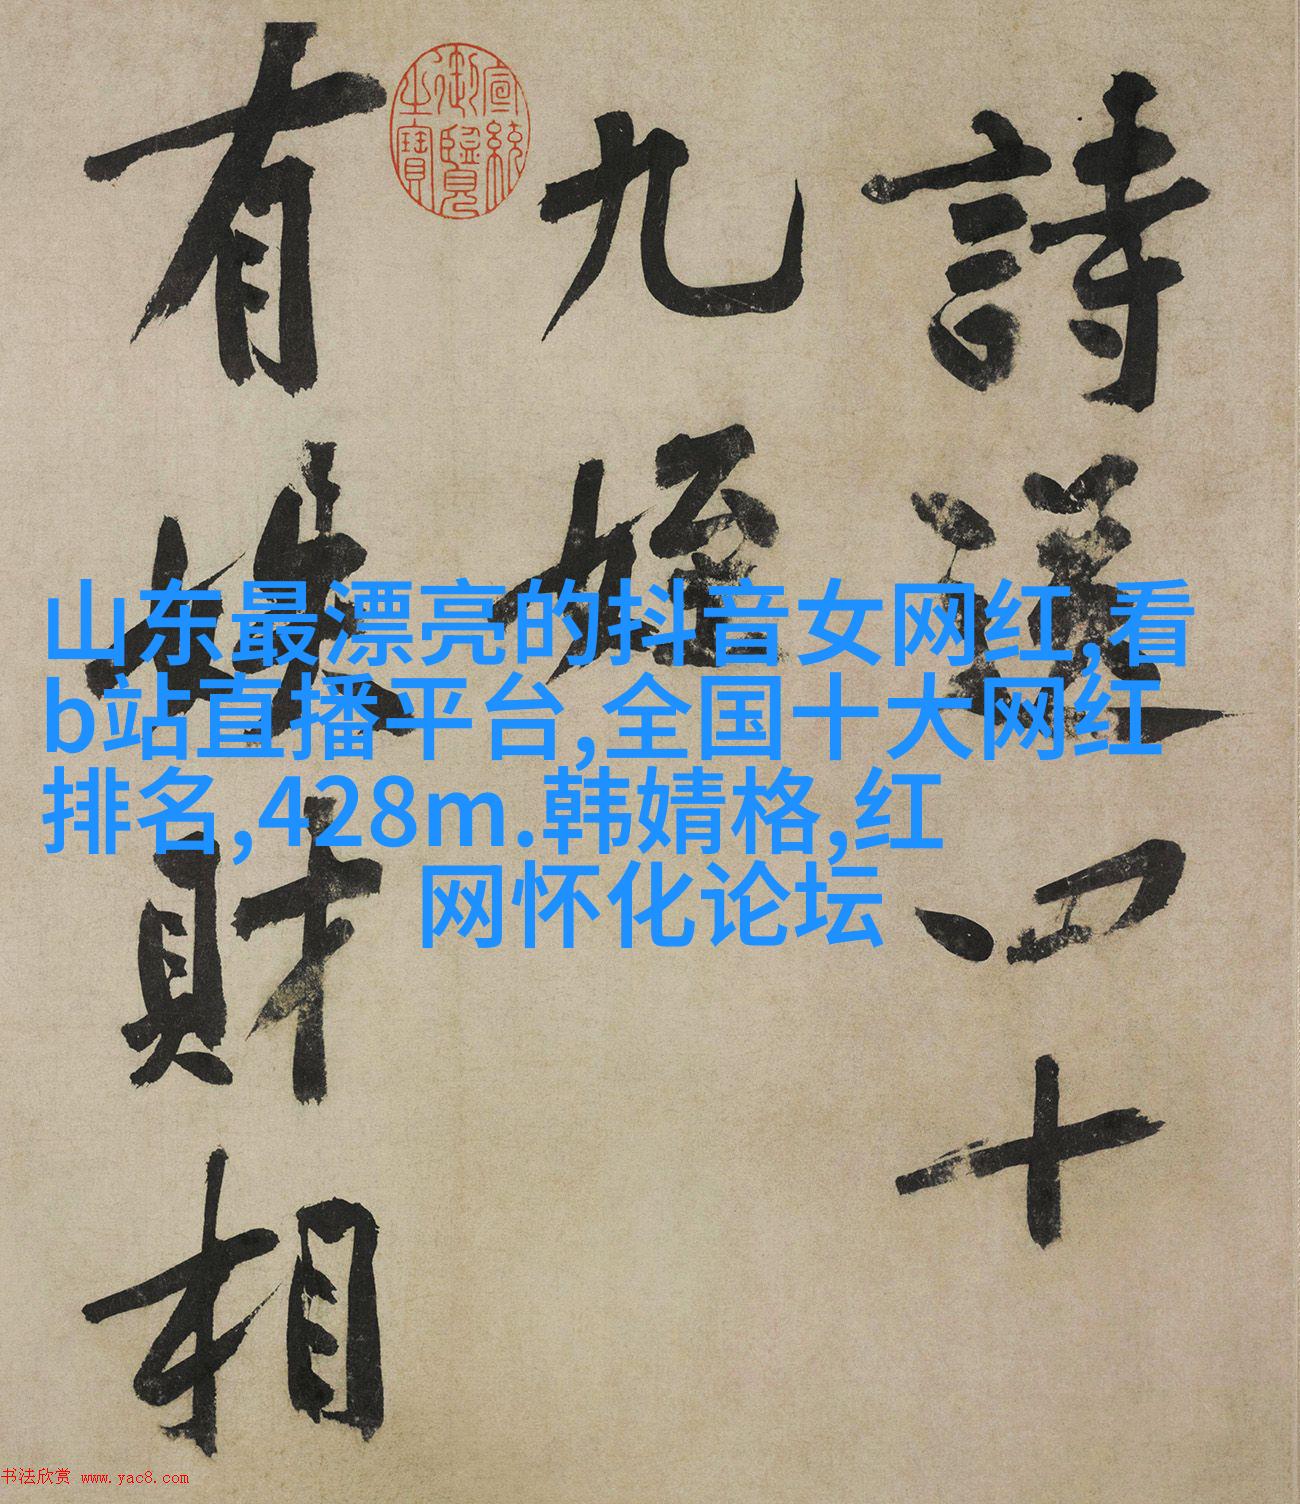 詩送四十
九姪
有嫂財相
宣統御覽之寶
山东最漂亮的抖音女网红,看
b站直播平台,全国十大网红
排名,428m.韩婧格,红
网怀化论坛
书法欣赏 www.yac8.com